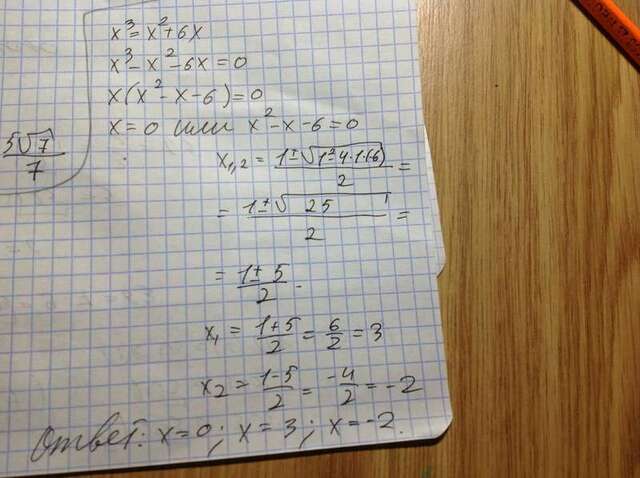 x³=x²+6x
x³-x²-6x=0
x(x²-x-6)=0
x=0 или x²-x-6=0
x₁,₂ = (1±√(1²-4·1·(-6)))/2 =
= (1±√25)/2 =
= (1±5)/2
x₁ = (1+5)/2 = 6/2 = 3
x₂ = (1-5)/2 = -4/2 = -2
Ответ: x=0; x=3; x=-2.
5√7/7